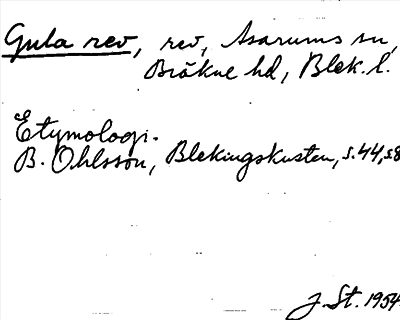 Gula rev, rev, Asarums sn,
Bräkne hd, Blek. l.
Etymologi.
B. Ohlsson, Blekingskusten, s.44, s8
J. St. 1954.